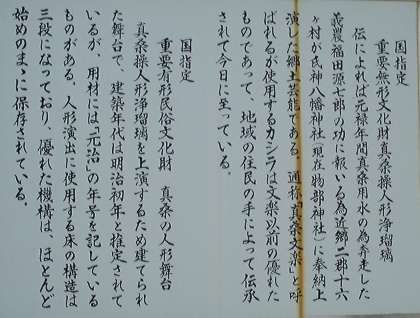 国指定
重要無形文化財真桑操人形浄瑠璃
伝によれば元禄年間真桑用水の為奔走した
義農福田源七郎の功に報いる為近郷二郡十六
ヶ村が氏神八幡神社(現在物部神社)に奉納上
演した郷土芸能である。通称「真桑文楽」と呼
ばれるが使用するカシラは文楽以前の優れた
ものであって、地域の住民の手によって伝承
されて今日に至っている。
国指定
重要有形民俗文化財 真桑の人形舞台
真桑操人形浄瑠璃を上演するため建てられ
た舞台で、建築年代は明治初年と推定されて
いるが、用材には「元治」の年号を記している
ものがある。人形演出に使用する床の構造は
三段になっており、優れた機構は、ほとんど
始めのまゝに保存されている。